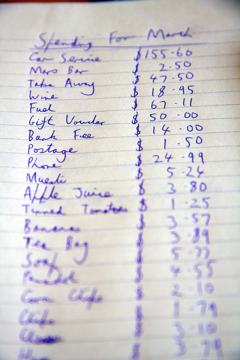 Spending For March
Car Service $155.60
Mars Bar $ 2.50
Take Away $47.50
Wine $ 18.95
Fuel $ 67.11
Gift Voucher $ 50.00
Bank Fee $ 14.00
Postage $ 1.50
Phone $ 24.99
Muesli $ 5.24
Apple Juice $ 3.80
Tinned Tomatoes $ 1.25
Bananas $ 3.57
Tea Bag $ 3.89
Soap $ 5.77
Panadol $ 4.55
Corn Chips $ 2.10
Chips $ 1.79
$ 3.10
$ 3.79